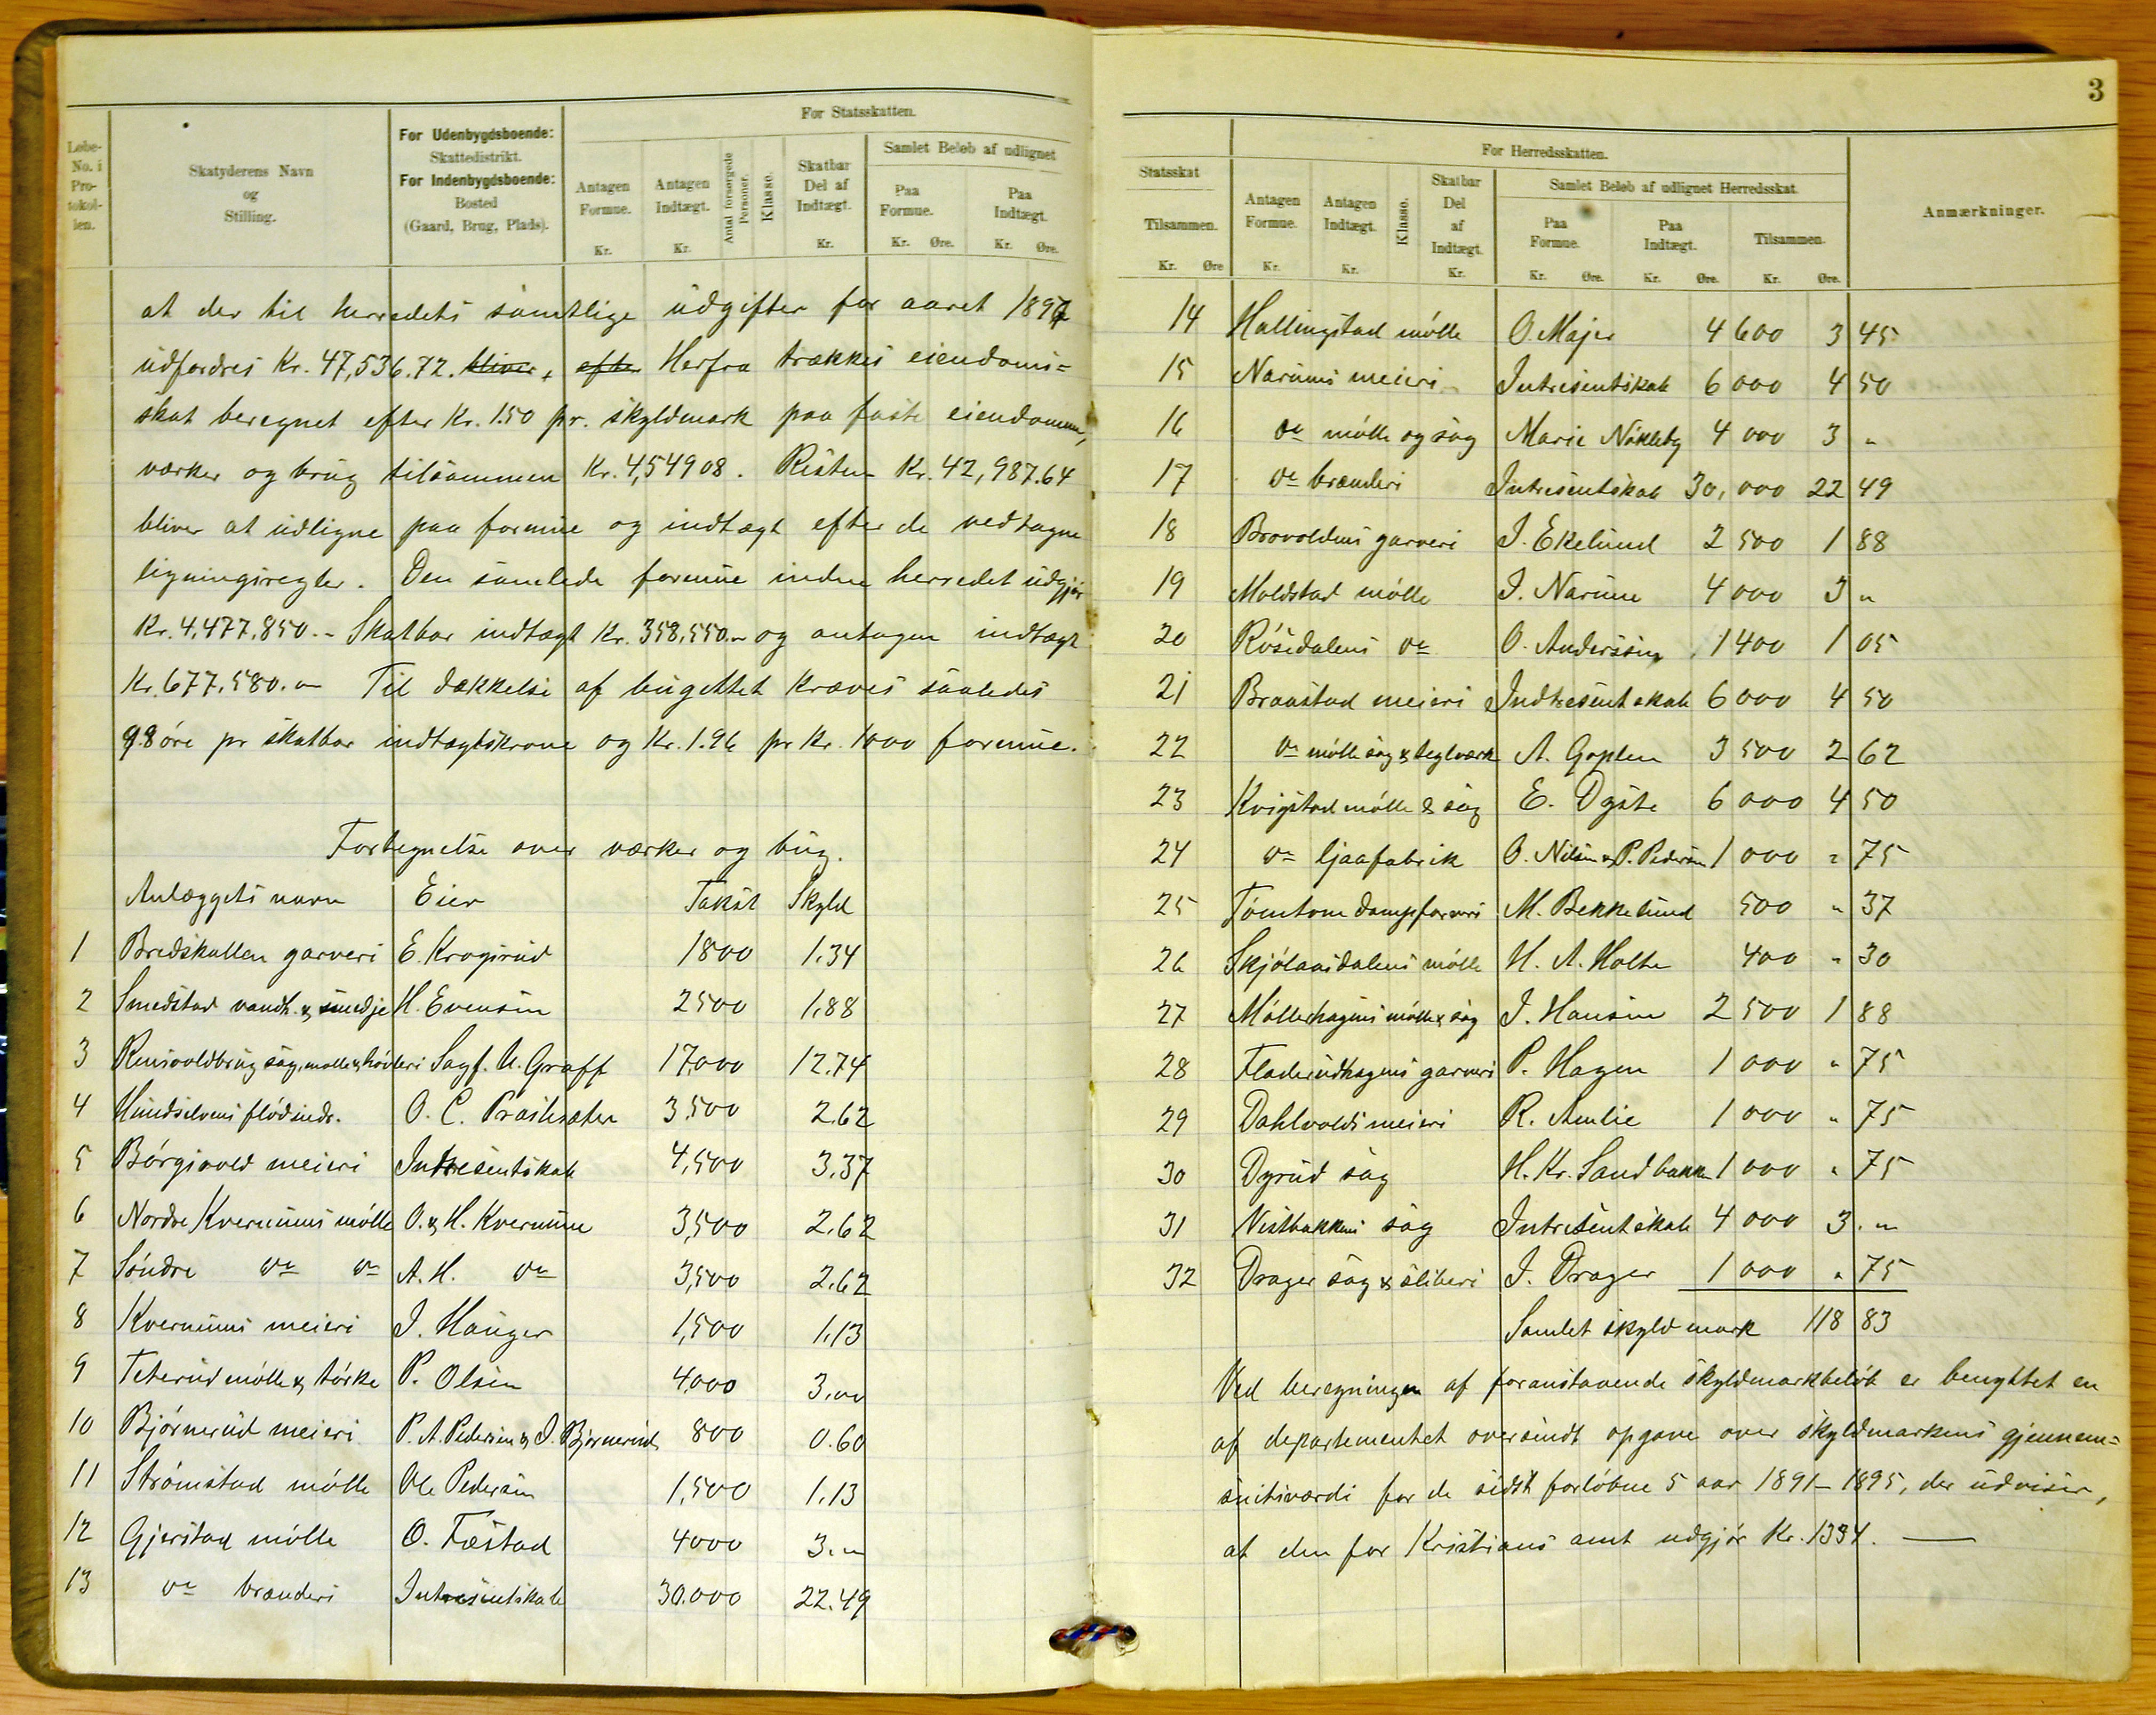 3
Løbe-No. i Protokollen.
Skatyderens Navn og Stilling.
For Udenbygdsboende: Skattedistrikt. For Indenbygdsboende: Bosted (Gaard, Brug, Plads).
For Statsskatten.
Antagen Formue. Kr.
Antagen Indtægt. Kr.
Antal forsørgede Personer.
Klasse.
Skatbar Del af Indtægt. Kr.
Samlet Beløb af udlignet
Paa Formue. Kr. Øre.
Paa Indtægt. Kr. Øre.
at der til herredets samtlige udgifter for aaret 1897
udfordres Kr. 47,536.72. bliver, efter Herfra trækkes eiendoms=
skat beregnet efter Kr. 1.50 pr. skyldmark paa faste eiendomme,
værker og brug tilsammen Kr. 4,549 08. Resten Kr. 42,987.64
bliver at udligne paa formue og indtægt efter de vedtagne
ligningsregler. Den samlede formue inden herredet udgjør
Kr. 4.477.850.- Skatbar indtægt Kr. 358,550.- og antagen indtægt
Kr. 677.580.- Til dækkelse af bugettet kræves saaledes
9.8 øre pr skatbar indtægtskrone og Kr. 1.96 pr Kr. 1000 formue.
Fortegnelse over værker og brug.
Anlæggets navn Eier Takst Skyld
1 Bredskallen garveri E. Krogsrud 1800 1.34
2 Smedstad vandh. & smedje H. Evensen 2500 1.88
3 Rensvoldbrug sag, mølle & høvleri Sagf. U. Graff 17,000 12.74
4 Hundselvens flødindr. O. C. Præstesæter 3.500 2.62
5 Børgsvold meieri Intresentskab 4,500 3.37
6 Nordre Kvernums mølle O. & H. Kvernum 3,500 2.62
7 Søndre do do A. H. do 3,500 2.62
8 Kvernums meieri J. Hauger 1,500 1.13
9 Teterud mølle & tørke P. Olsen 4000 3.00
10 Bjørnerud meieri P. A. Pedersen & O. Bjørnerud 800 0.60
11 Strømstad mølle Ole Pedersen 1,500 1.13
12 Gjerstad mølle O. Fæstad 4000 3.-
13 do brænderi Intresentskab 30.000 22.49
Statsskat
Tilsammen. Kr. Øre
For Herredsskatten.
Antagen Formue. Kr.
Antagen Indtægt. Kr.
Klasse.
Skatbar Del af Indtægt. Kr.
Samlet Beløb af udlignet Herredsskat.
Paa Formue. Kr. Øre.
Paa Indtægt. Kr. Øre.
Tilsammen. Kr. Øre.
Anmærkninger.
14 Hallingstad mølle O. Majer 4600 3 45
15 Narums meieri Intresentskab 6000 4 50
16 do mølle og sag Marie Nøkleby 4000 3 "
17 do brænderi Intresentskab 30,000 22 49
18 Brovoldens garveri J. Ekelund 2500 1 88
19 Moldstad mølle J. Narum 4000 3 "
20 Røsedalens do O. Anderssen 1400 1 05
21 Braastad meieri Indtresentskab 6000 4 50
22 do mølle sag & teglværk A. Goplen 3500 2 62
23 Kvigstad mølle & sag E. Dyste 6000 4 50
24 do ljaafabrik O. Nilsen & P. Pedersen 1000 " 75
25 Tømtom dampfarveri M. Bekkelund 500 " 37
26 Skjølaasdalens mølle H. A. Holte 400 " 30
27 Møllerhagens mølle & sag J. Hansen 2500 1 88
28 Fladerudhagens garveri P. Hagen 1000 " 75
29 Dahlvolds meieri R. Amlie 1000 " 75
30 Dyrud sag H. Kr. Sandbakken 1000 " 75
31 Nistbakkens sag Intresentskab 4000 3. "
32 Drager sag & sliberi J. Drager 1000 " 75
Samlet skyldmark 118 83
Ved beregningen af foranstaaende skyldmarkbeløb er benyttet en
af departementet oversendt opgave over skyldmarkens gjennem=
snitsværdi for de sidst forløbne 5 aar 1891-1895, der udviser,
at den for Kristians amt udgjør Kr. 1334.